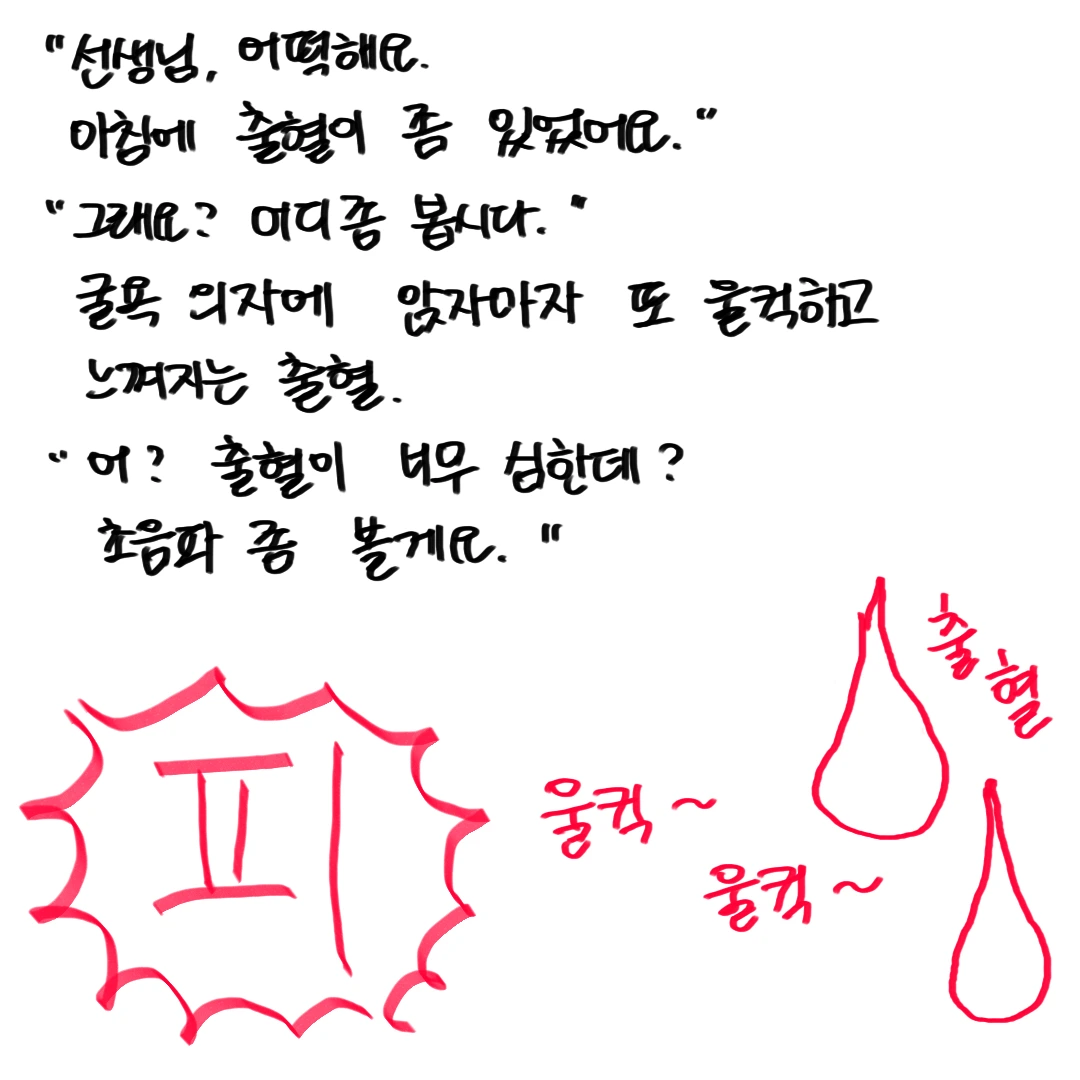 "선생님, 어떡해요.
아침에 출혈이 좀 있었어요."
"그래요? 어디좀 봅시다."
굴욕 의자에 앉자마자 또 울컥하고
느껴지는 출혈.
"어? 출혈이 너무 심한데?
초음파 좀 볼게요."
출혈
피
울컥~
울컥~